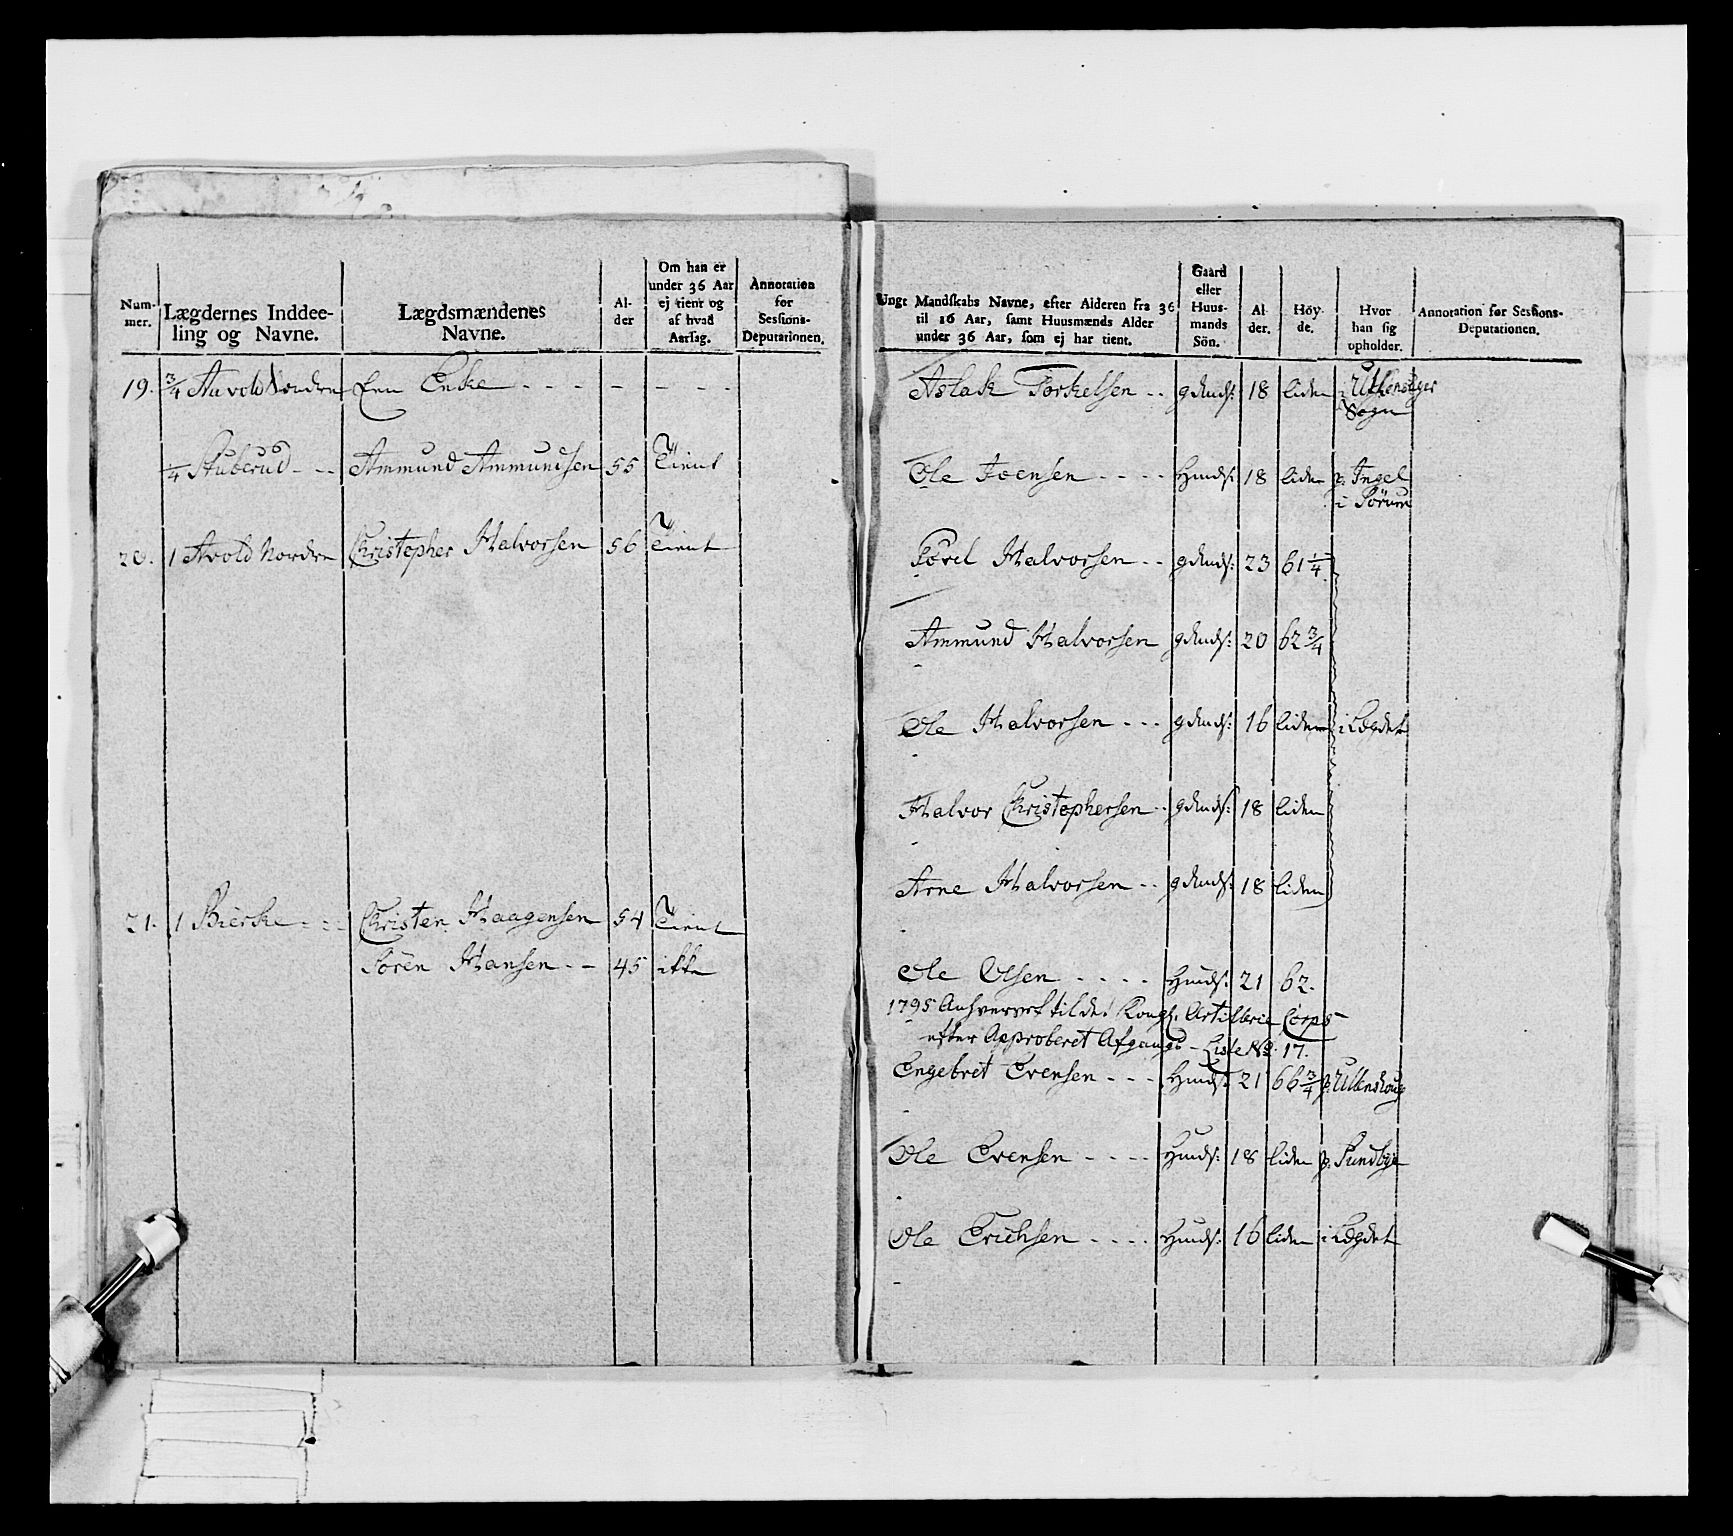 Num-
mer.
Lægdernes Inddee-
ling og Navne.
Lægdsmændenes
Navne.
Al-
der
Om han er
under 36 Aar
ej tient og
af hvad
Aarsag.
Annotation
for
Sessions-
Deputationen.
19. 3/4 Aavold Nordre Een Enke - - - - - - -
1/4 Stuberud - - - Ammund Ammundsen 55 Tient
20. 1 Avold Nordre Christopher Halvorsen 56 Tient
21. 1 Bierke - - - Christen Haagensen 54 Tient
Sören Hansen - - 45 ikke
Ungt Mandskabs Navne, efter Alderen fra 36
til 16 Aar, samt Huusmænds Alder
under 36 Aar, som ej har tient.
Gaard
eller
Huus-
mands
Sön.
Al
der.
Höy-
de.
Hvor
han sig
opholder.
Annotation for Sessions-
Deputationen.
Aslak Torkelsen - - gdmds: 18 liden
Sogn
Ole Joensen - - - - Hmds: 18 liden p. Ingel
i Sørum
Povel Halvorsen - - gdmds: 23 61 1/4
Ammund Halvorsen gdmds: 20 62 3/4
Ole Halvorsen - - - gdmds: 16 liden i Lægdet
Halvor Christophersen - - gdmds: 18 liden
Arne Halvorsen - - gdmds: 18 liden
Ole Olsen - - - - Hmds: 21 62.
1795 Anhvervet til det Kongl. Artillerie Corps
efter Approberet Afgangs-Liste No. 17.
Engebret Evensen - - - Hmds: 21 66 3/4 p.
Ole Evensen - - - - Hmds: 18 liden p. Sundbye
Ole Erichsen - - - - Hmds: 16 liden i Lægdet